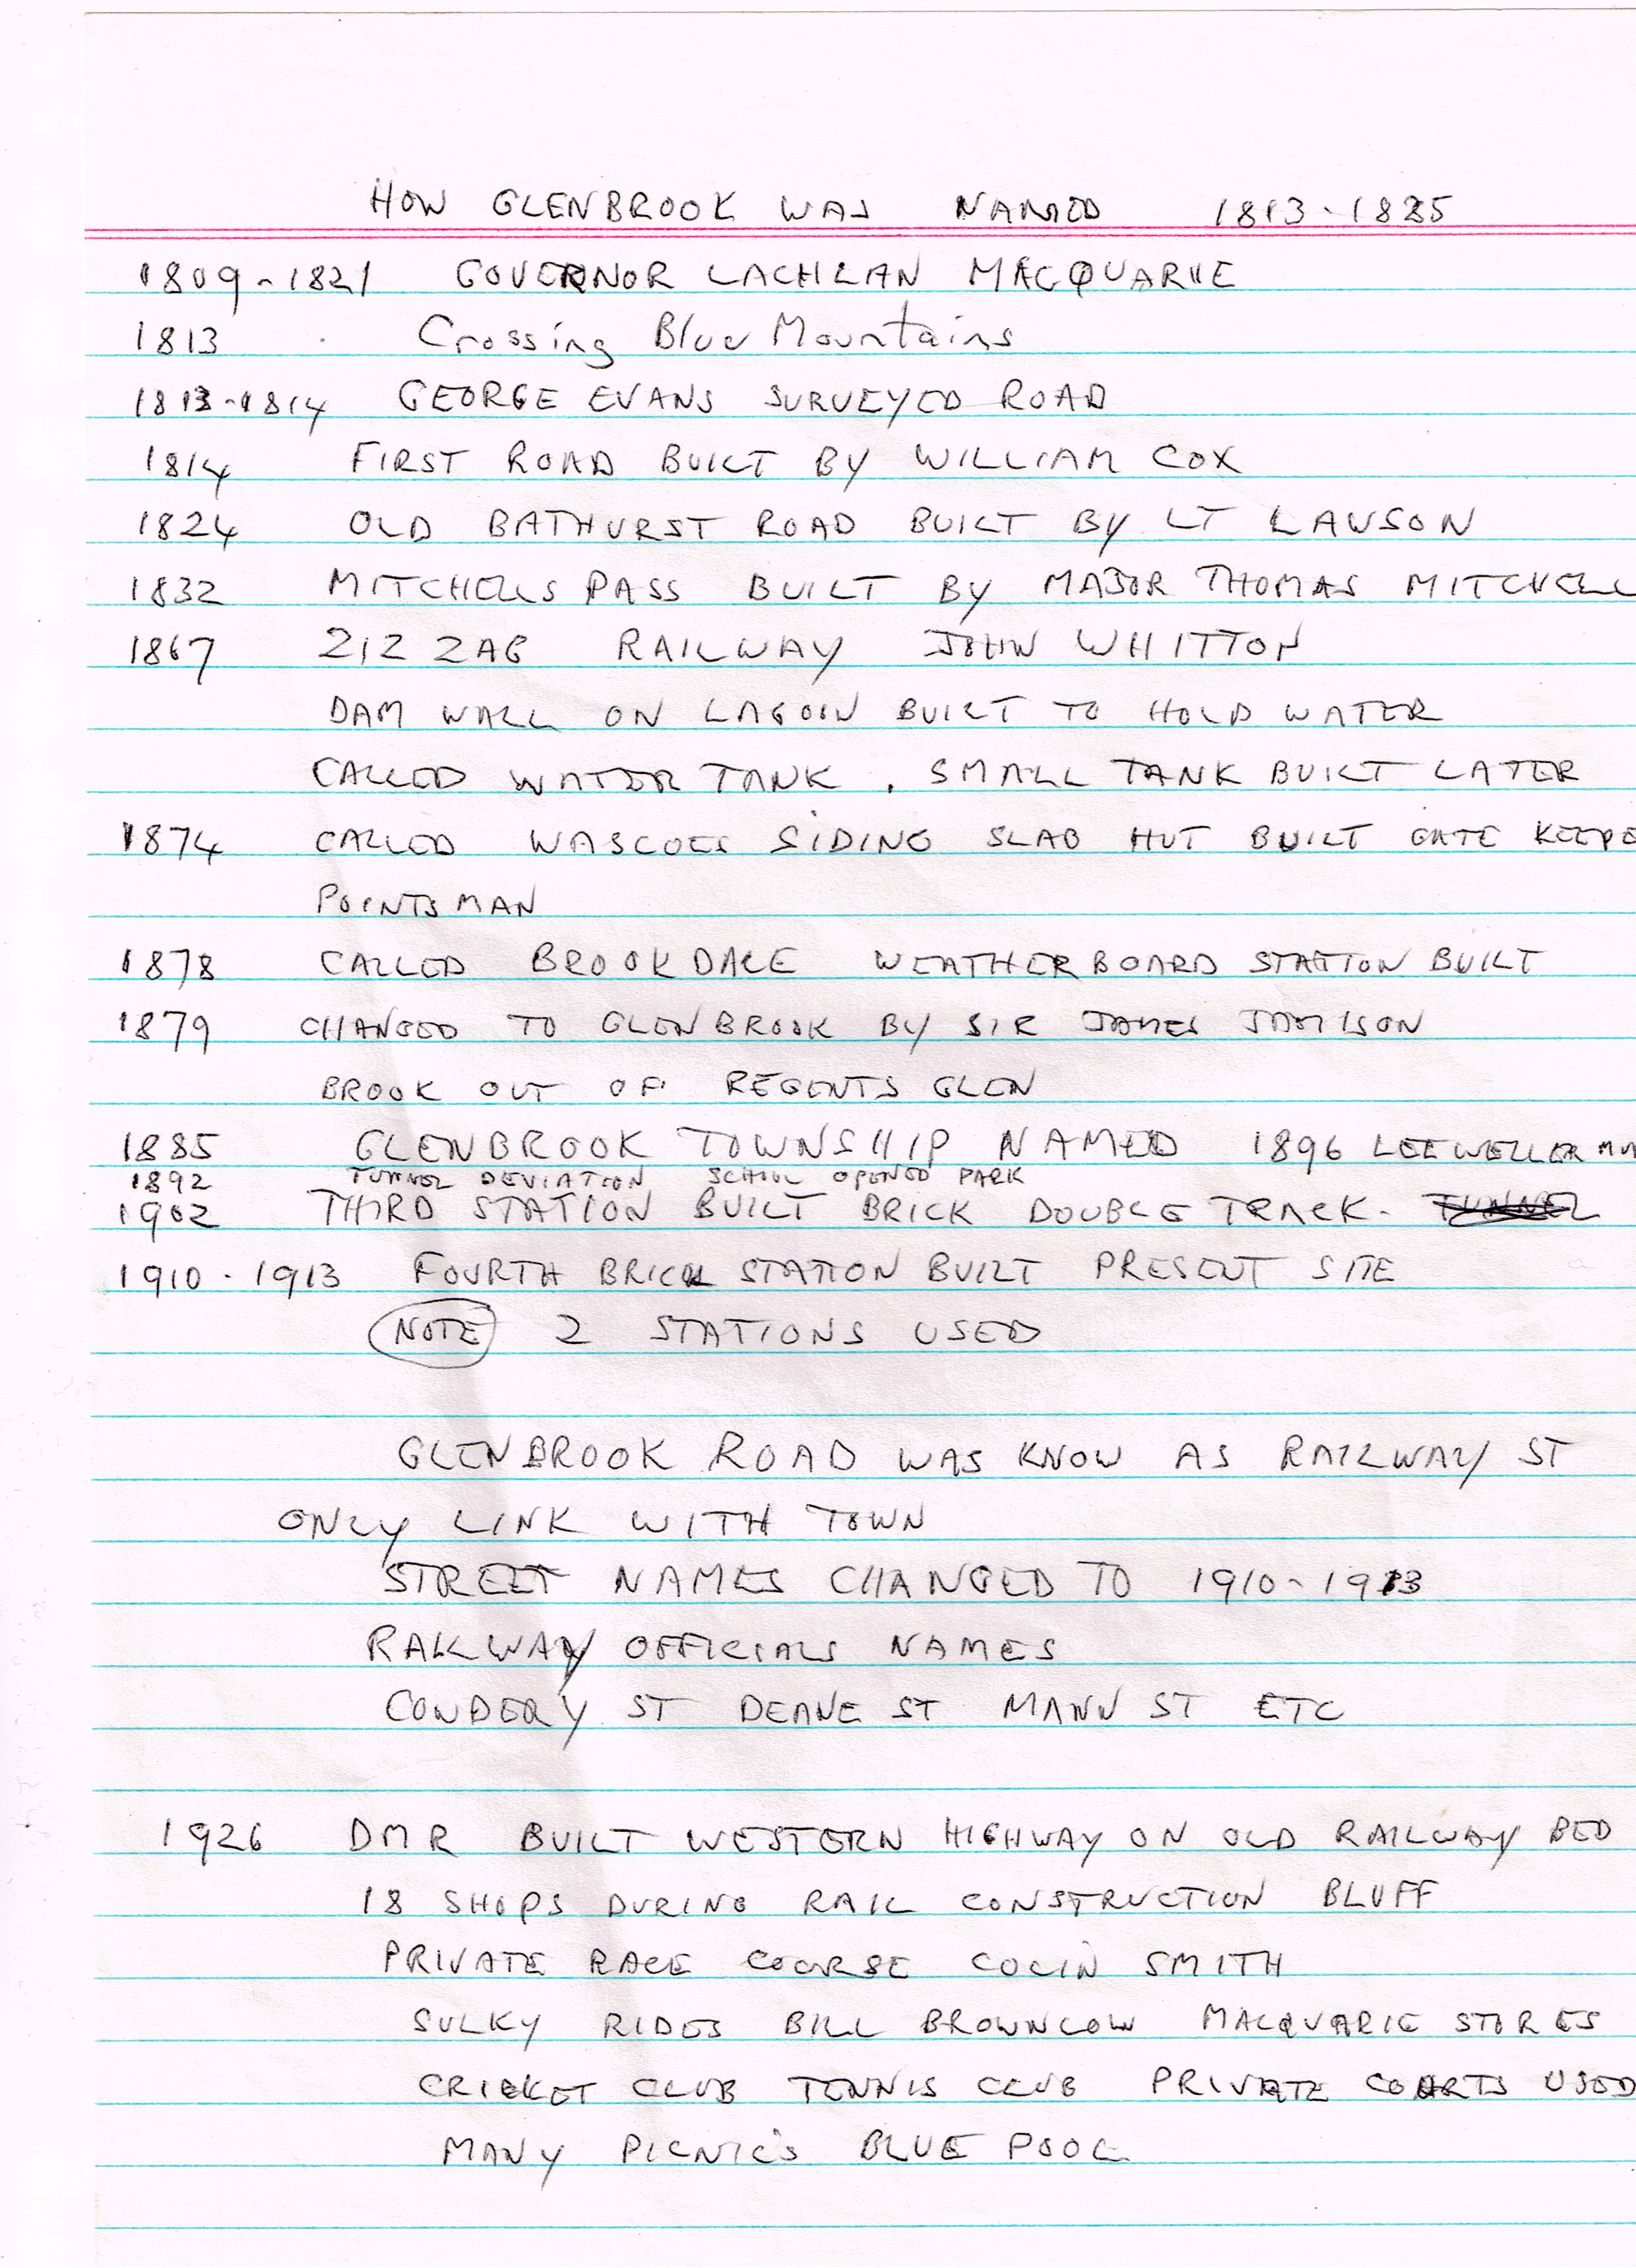 HOW GLENBROOK WAS NAMED 1813-1885
1809-1821 GOVERNOR LACHLAN MACQUARIE
1813 Crossing Blue Mountains
1813-1814 GEORGE EVANS SURVEYED ROAD
1814 FIRST ROAD BUILT BY WILLIAM COX
1824 OLD BATHURST ROAD BUILT BY LT LAWSON
1832 MITCHELLS PASS BUILT BY MAJOR THOMAS MITCHELL
1867 ZIZ ZAG RAILWAY JOHN WHITTON
DAM WALL ON LAGOON BUILT TO HOLD WATER
CALLED WATER TANK. SMALL TANK BUILT LATER
1874 CALLED WASCOES SIDING SLAB HUT BUILT GATE KEEPE
POINTSMAN
1878 CALLED BROOKDALE WEATHERBOARD STATION BUILT
1879 CHANGED TO GLENBROOK BY SIR JAMES JAMISON
BROOK OUT OF REGENTS GLEN
1885 GLENBROOK TOWNSHIP NAMED 1896 LEEWELLER
1892 TUNNEL DEVIATION SCHOOL OPENED PARK
1902 THIRD STATION BUILT BRICK DOUBLE TRACK- TUNNEL
1910-1913 FOURTH BRICK STATION BUILT PRESENT SITE
NOTE 2 STATIONS USED
GLENBROOK ROAD WAS KNOW AS RAILWAY ST
ONLY LINK WITH TOWN
STREET NAMES CHANGED TO 1910-1913
RAILWAY OFFICIALS NAMES
COWDERY ST DEANE ST MANN ST ETC
1926 DMR BUILT WESTERN HIGHWAY ON OLD RAILWAY BED
18 SHOPS DURING RAIL CONSTRUCTION BLUFF
PRIVATE RACE COURSE COLIN SMITH
SULKY RIDES BILL BROWNLOW MACQUARIE STORES
CRICKET CLUB TENNIS CLUB PRIVATE COURTS USED
MANY PICNICS BLUE POOL